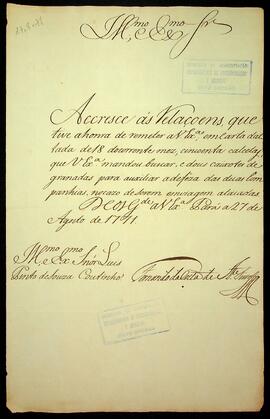 Ill.mo Ex.mo Sr.
Accresce ás Relaccens que
tive a honra de remeter a V Ex.ª em Carta dat
tada de 18 do corrente mez, cincoenta
que V Ex.ª mandou buscar, e dous caixotes de
granadas para auxiliar a defeza das duas Com
panhias, no cazo de serem em viagem atacadas
Deos G.de a V Ex.ª Pará a 27 de
Agosto de 1791
Ill.mo e Ex.mo Snõr Luis
Pinto de Souza Coutinho